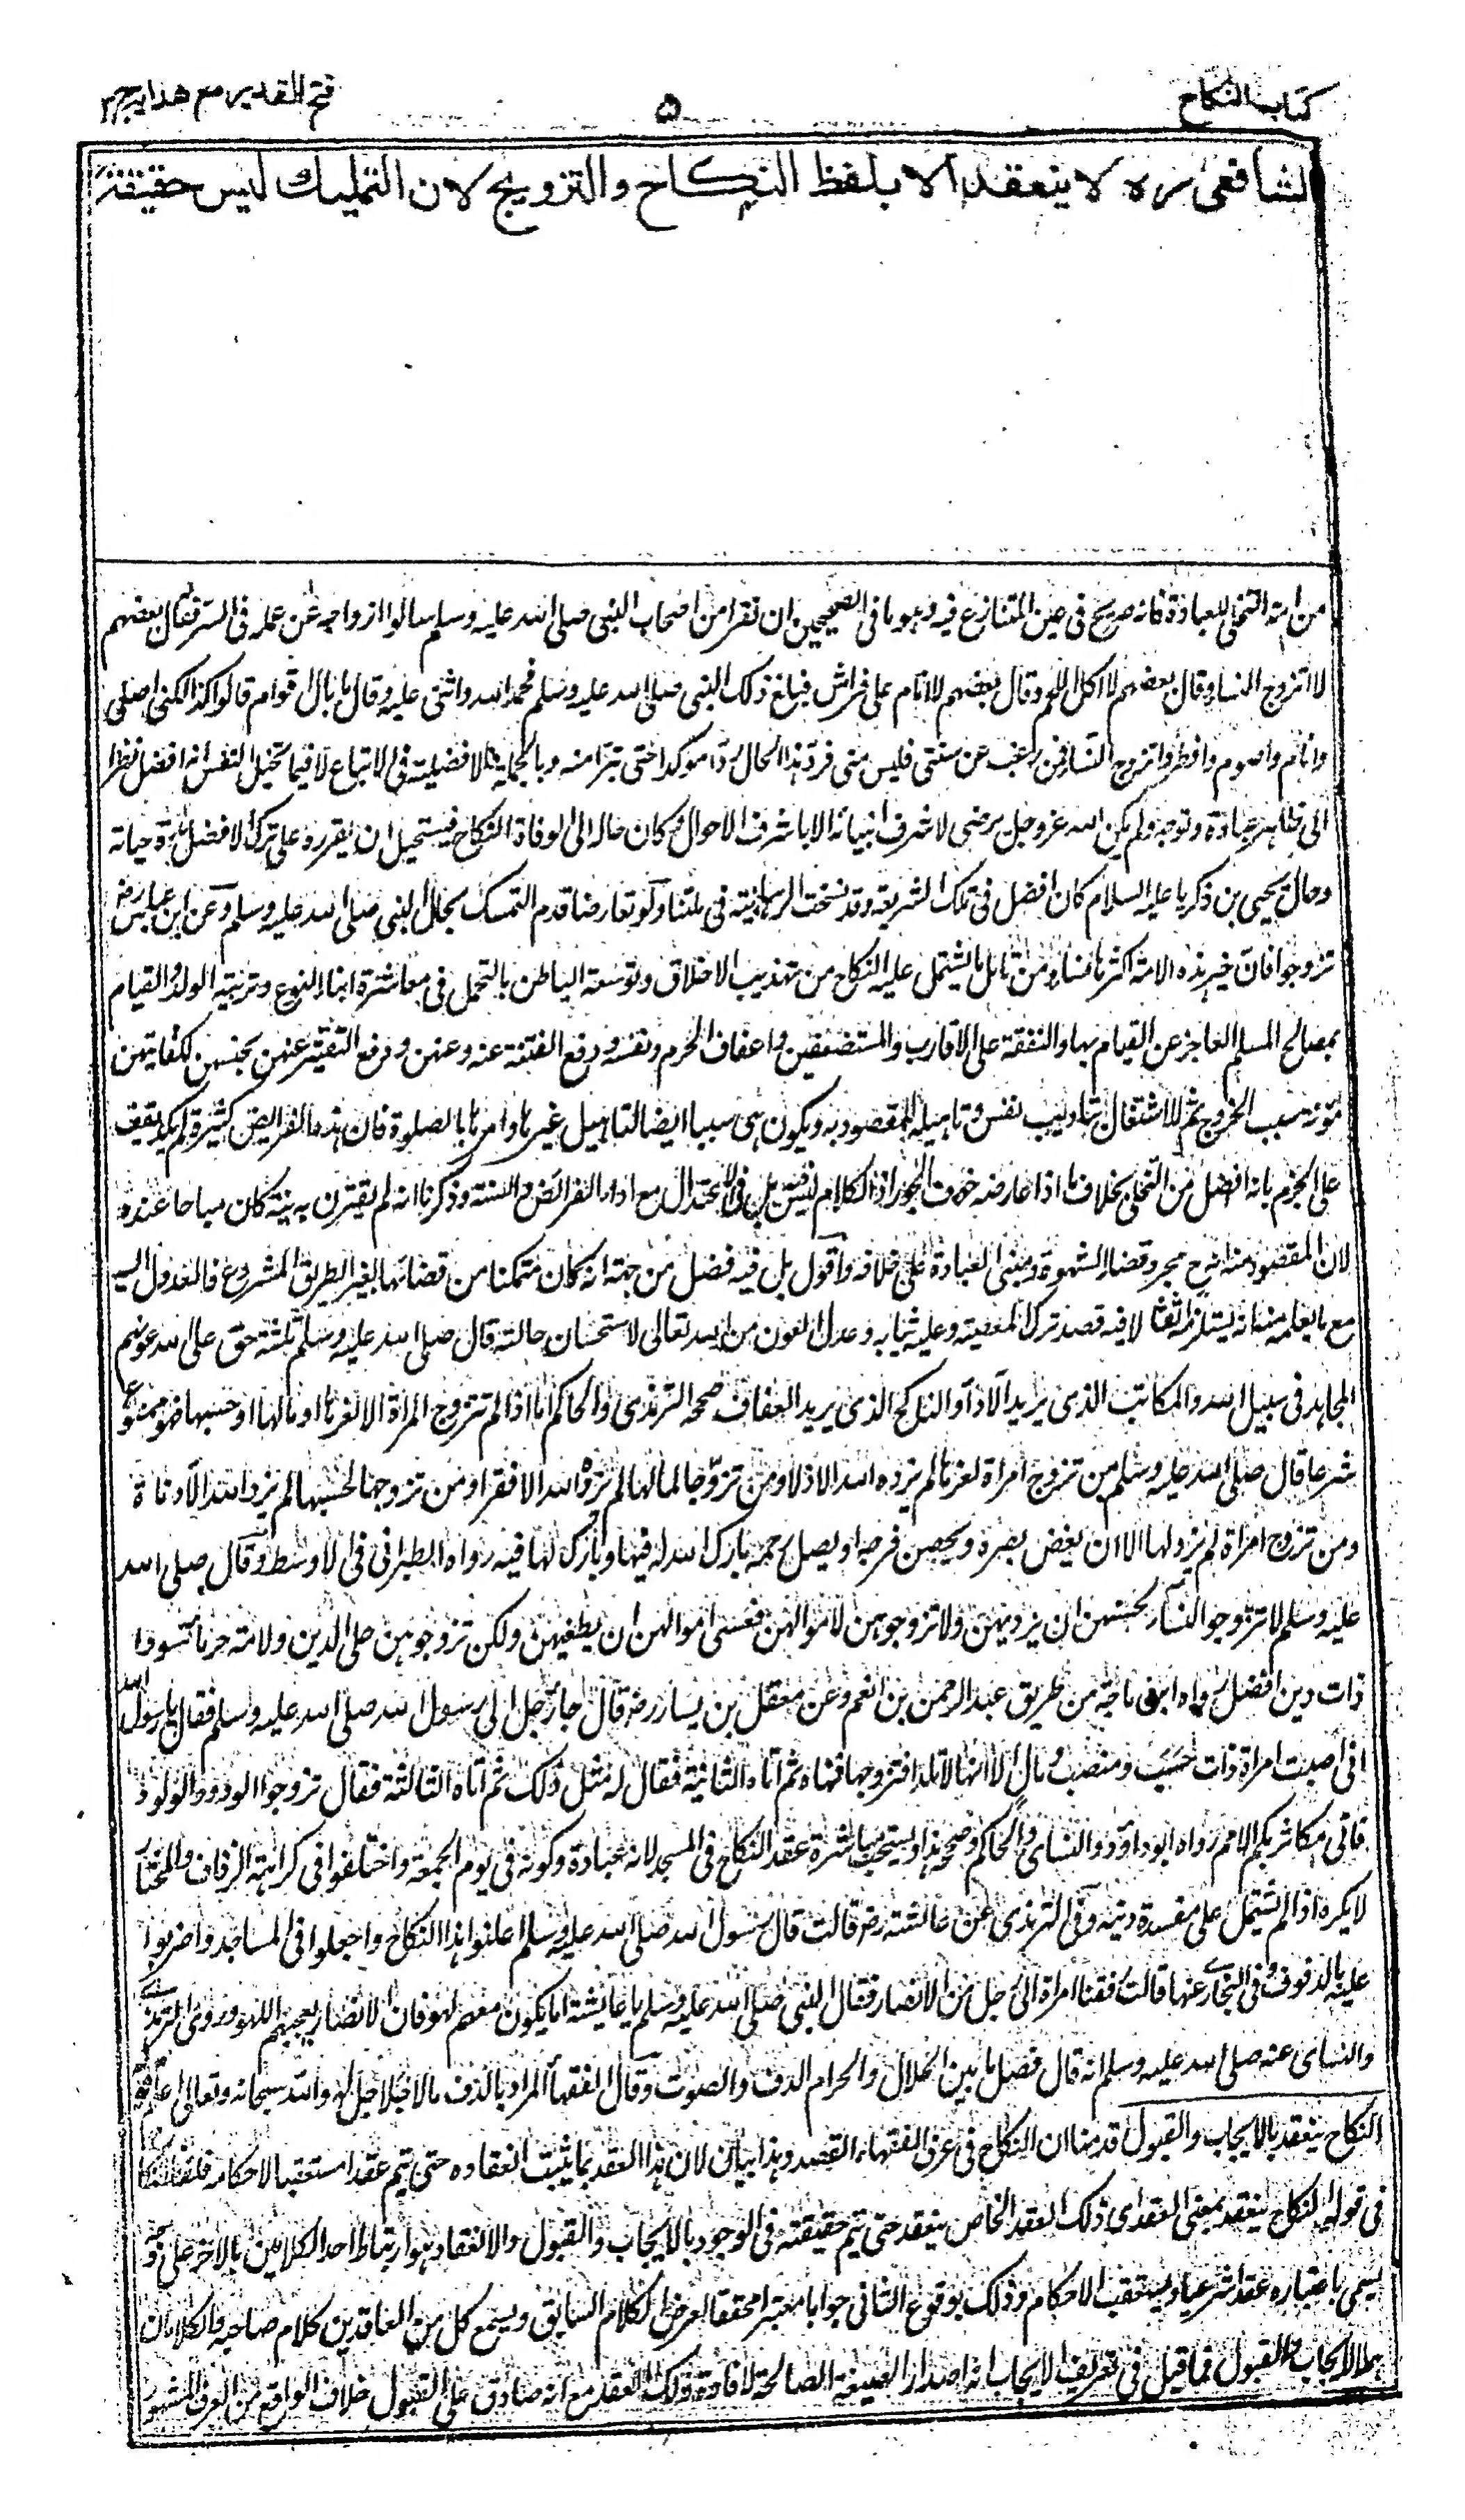 كتاب النكاح
٥
فتح القدير مع هدايه ج ٢
لشافعي ره لا ينعقد الا بلفظ النكاح والتزويج لان التمليك ليس حقيقة
من امته التخلي للعبادة فانه صريح في عين المتنازع فيه وهو ما في الصحيحين ان نفرا من اصحاب النبي صلى الله عليه وسلم سالوا ازواجه عن عمله في السر فقال بعضهم
لا اتزوج النساء وقال بعضهم لا اكل اللحم وقال بعضهم لا انام على فراش فبلغ ذلك النبي صلى الله عليه وسلم فحمد الله واثنى عليه وقال ما بال اقوام قالوا كذا لكني اصلي
وانام واصوم وافطر واتزوج النساء فمن رغب عن سنتي فليس مني فرد هذا الحال ردا موكدا حتى تبرا منه وبالجملة فالافضلية في الاتباع لا فيما تخيل النفس انه افضل نظرا
الى ظاهر عبادة وتوجه ولم يكن الله عز وجل يرضى لاشرف انبيائه الا باشرف الاحوال وكان حاله الى الوفاة النكاح فيستحيل ان يقرره على ترك الافضل مدة حياته
وحال يحيى بن زكريا عليه السلام كان افضل في تلك الشريعة وقد نسخت الرهبانية في ملتنا ولو تعارضا قدم التمسك بحال النبي صلى الله عليه وسلم وعن ابن عباس رض
تزوجوا فان خير هذه الامة اكثرها نساء ومن تامل ما يشتمل عليه النكاح من تهذيب الاخلاق وتوسعة الباطن بالتحمل في معاشرة ابناء النوع وتربية الولد والقيام
بمصالح المسلم العاجز عن القيام بها والنفقة على الاقارب والمستضعفين واعفاف الحرم ونفسه ودفع الفتنة عنه وعنهن ودفع التقتير عنهن بحبسهن لكفايتهن
مؤنة سبب الخروج ثم الاشتغال بتاديب نفسه وتاهيله للمقصود به ويكون هي سببا ايضا لتاهيل غيرها وامرها بالصلوة فان هذه الفرايض كثيرة لم يكد يقف
على الجزم بانه افضل من التخلي بخلاف ما اذا عارضه خوف الجور اذ الكلام ليس فيه بل في الاعتدال مع اداء الفرائض والسنة وذكرنا انه لم يقترن به نية كان مباحا عنده
لان المقصود منه اذ ح مجرد قضاء الشهوة ومبنى العبادة على خلافه واقول بل فيه فضل من جهة انه كان متمكنا من قضائها بغير الطريق المشروع فالعدول اليه
مع ما يعلمه من انه يستلزم اثقالا فيه قصد ترك المعصية وعليه يثاب وعد العون من الله تعالى لاستحسان حالته قال صلى الله عليه وسلم ثلثة حق على الله عونهم
المجاهد في سبيل الله والمكاتب الذي يريد الاداء والناكح الذي يريد العفاف صححه الترمذي والحاكم اما اذا لم تتزوج المراة الا لعزها او مالها او حسبها فهو ممنوع
شرعا قال صلى الله عليه وسلم من تزوج امراة لعزها لم يزده الله الا ذلا ومن تزوجها لمالها لم يزده الله الا فقرا ومن تزوجها لحسبها لم يزده الله الا دناءة
ومن تزوج امراة لم يرد لها الا ان يغض بصره ويحصن فرجه او يصل رحمه بارك الله له فيها وبارك لها فيه رواه الطبراني في الاوسط وقال صلى الله
عليه وسلم لا تتزوجوا النساء لحسنهن ان يرديهن ولا تزوجوهن لاموالهن فعسى اموالهن ان يطغيهن ولكن تزوجوهن على الدين ولامة خرماء سوداء
ذات دين افضل رواه ابن ماجة من طريق عبد الرحمن بن انعم وعن معقل بن يسار رض قال جاء رجل الى رسول الله صلى الله عليه وسلم فقال يا رسول الله
اني اصبت امراة ذات حسب ومنصب ومال الا انها لا تلد افتزوجها فنهاه ثم اتاه الثانية فقال له مثل ذلك ثم اتاه الثالثة فقال تزوجوا الودود الولود
فاني مكاثر بكم الامم رواه ابو داؤد والنسائي والحاكم وصححه هذا ويستحب مباشرة عقد النكاح في المسجد لانه عبادة وكونه في يوم الجمعة واختلفوا في كراهة الزفاف والمختار
لا يكره اذا لم يشتمل على مفسدة دينية وفي الترمذي عن عائشة رض قالت قال رسول الله صلى الله عليه وسلم اعلنوا هذا النكاح واجعلوا في المساجد واضربوا
عليه بالدفوف وفي البخاري عنها قالت زففنا امراة الى رجل من الانصار فقال النبي صلى الله عليه وسلم يا عايشة اما يكون معهم لهو فان الانصار يعجبهم اللهو وروى الترمذي
والنسائي عنه صلى الله عليه وسلم انه قال فصل ما بين الحلال والحرام الدف والصوت وقال الفقهاء المراد بالدف ما لا جلاجل له والله سبحانه وتعالى اعلم قوله
النكاح ينعقد بالايجاب والقبول قدمنا ان النكاح في عرف الفقهاء العقد وهذا بيان لان هذا العقد بما يثبت انعقاده حتى يتم عقدا مستعقبا لاحكامه فلفظ النكاح
في قوله النكاح ينعقد بمعنى العقد اي ذلك العقد الخاص ينعقد حتى يتم حقيقته في الوجود بالايجاب والقبول والانعقاد هو ارتباط احد الكلامين بالاخر على وجه
يسمى باعتباره عقدا شرعيا ويستعقب الاحكام وذلك بوقوع الثاني جوابا معتبرا محققا لغرض الكلام السابق ويسمع كل من العاقدين كلام صاحبه والكلامان
هما الايجاب والقبول فما قيل في تعريف الايجاب انه اصدار الصيغة الصالحة لافادة ذلك العقد مع انه صادق على القبول خلاف الواقع من العرف المشهور